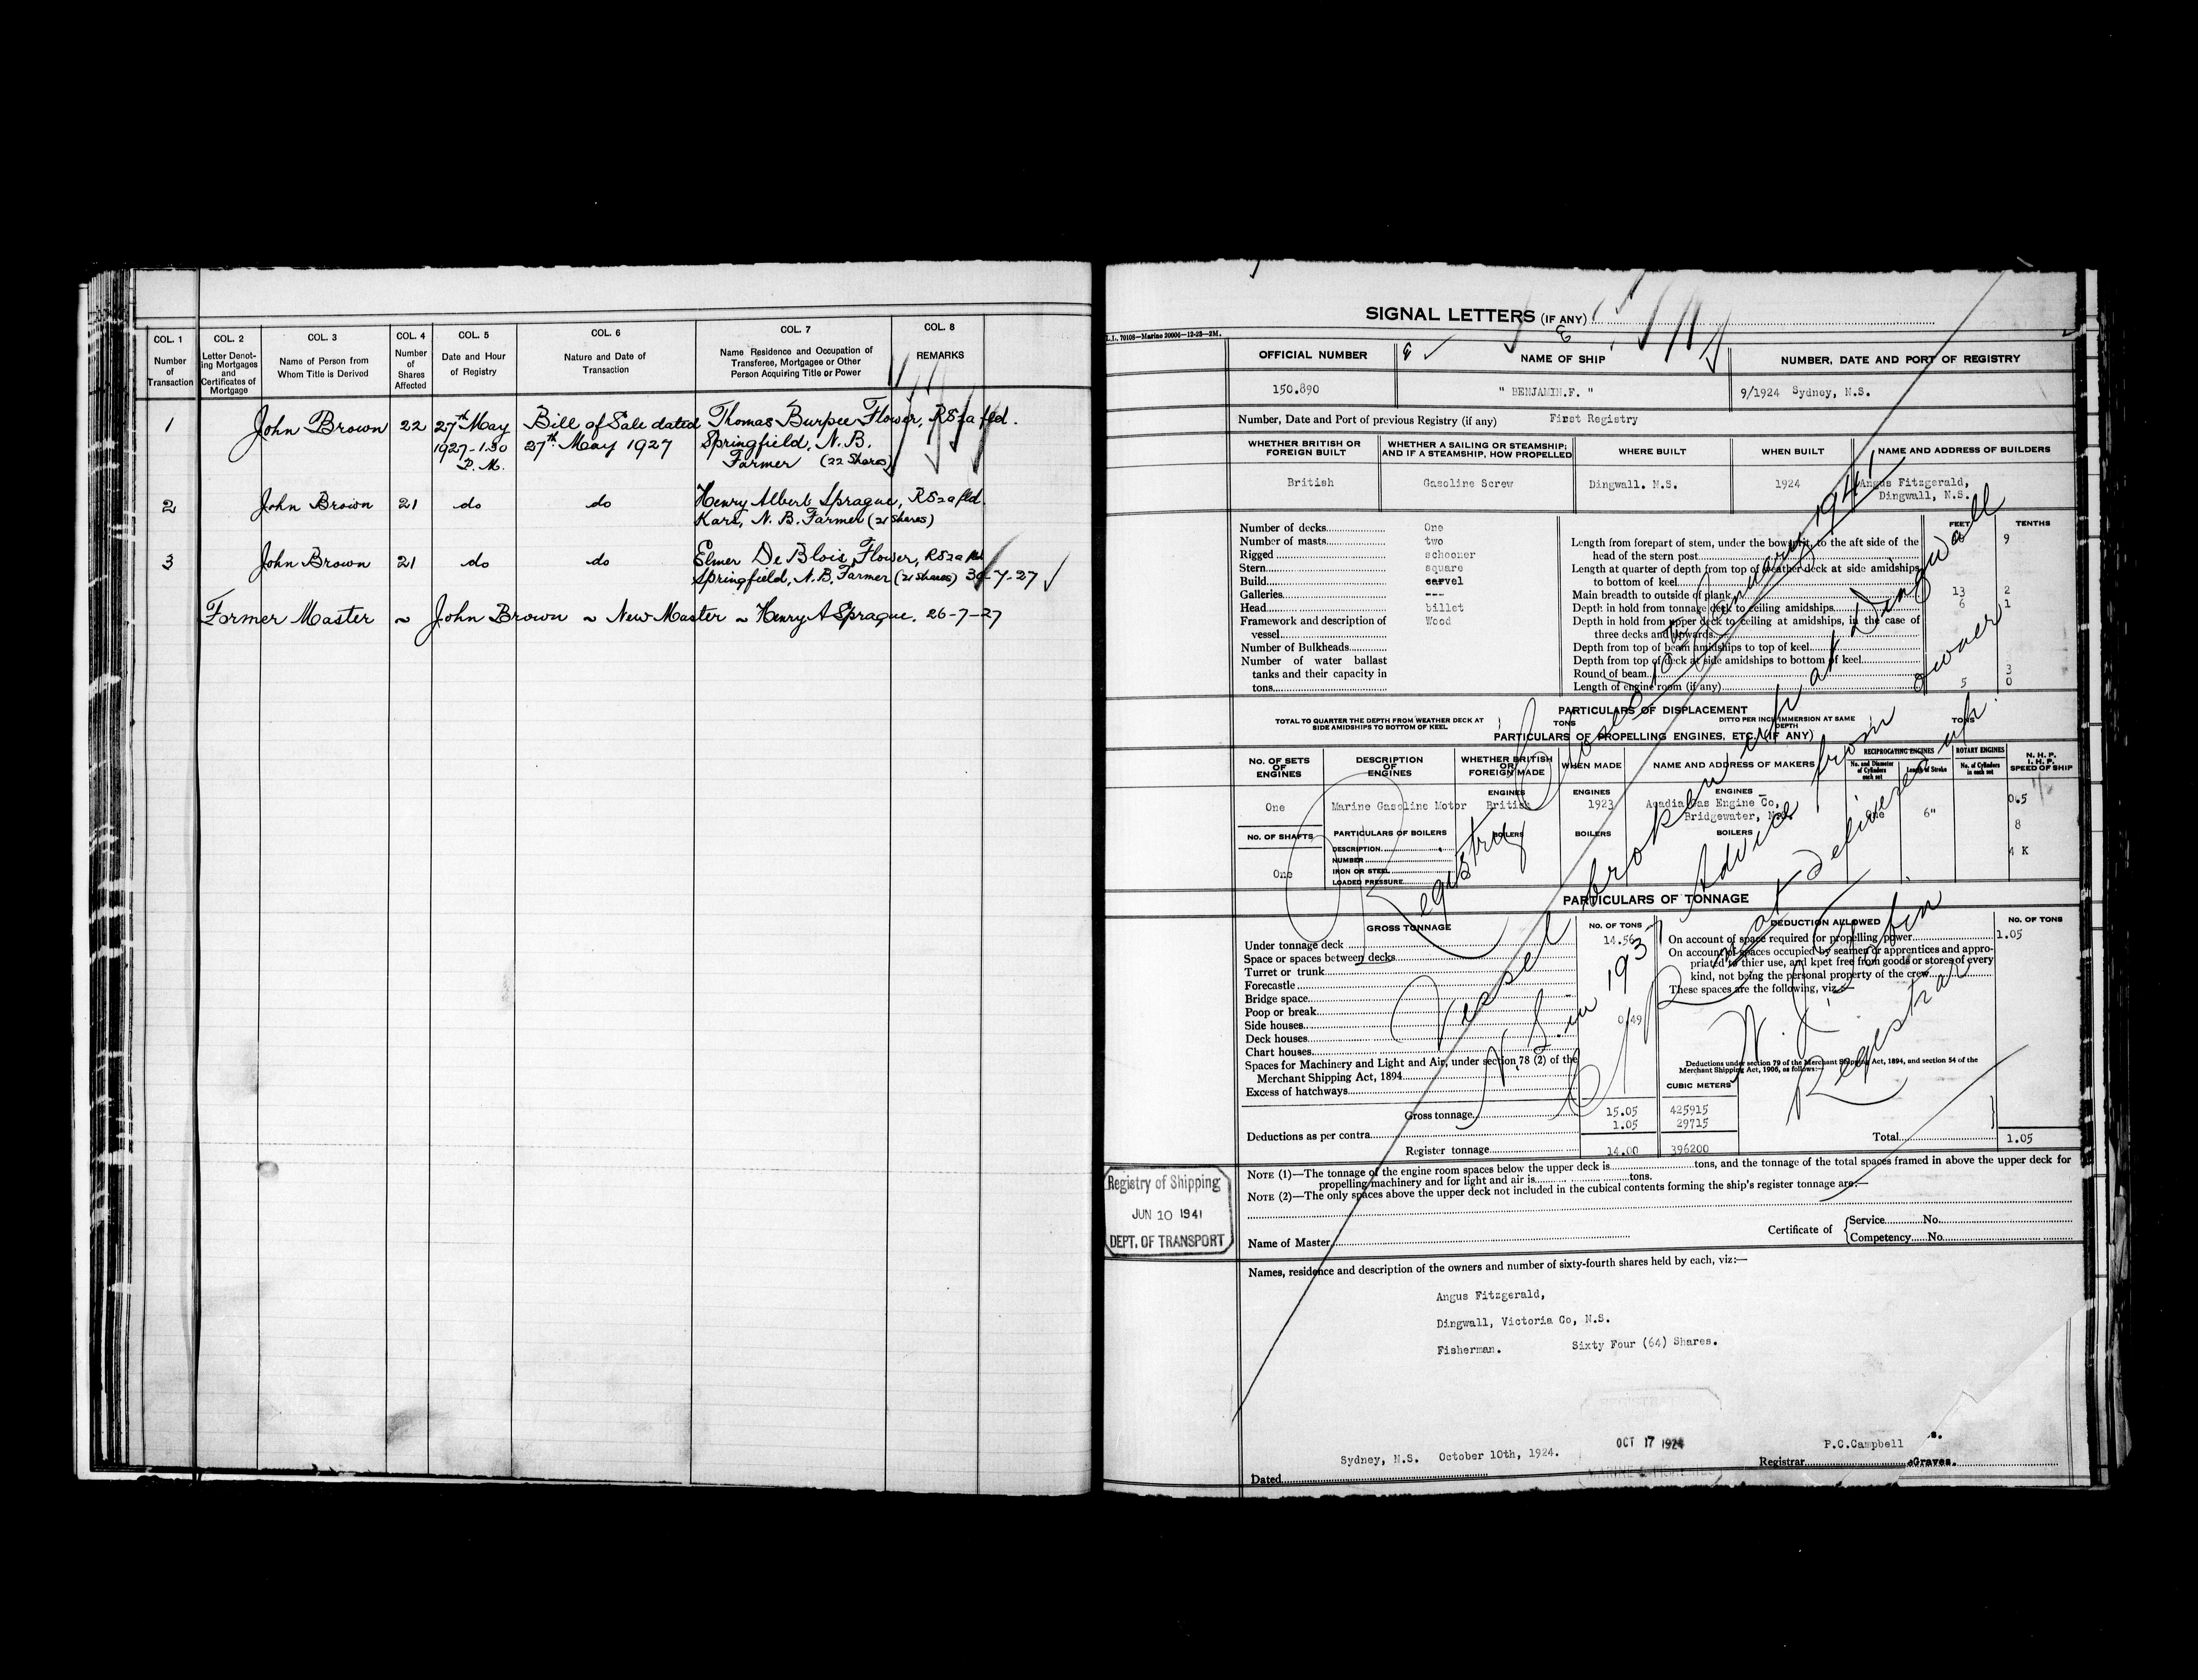 COL. 1 COL. 2 COL. 3 COL. 4 COL. 5 COL. 6 COL. 7 COL. 8
Number of Transaction
Letter Denoting Mortgages and Certificates of Mortgage
Name of Person from Whom Title is Derived
Number of Shares Affected
Date and Hour of Registry
Nature and Date of Transaction
Name Residence and Occupation of Transferee, Mortgagee or Other Person Acquiring Title or Power
REMARKS
1 John Brown 22 27th May Bill of Sale dated Thomas Burpee Flower, R52a fld.
1927-1.30 27th May 1927 Springfield, N.B.
P.M. Farmer (22 Shares)
2 John Brown 21 do do Henry Albert Sprague, R52a fld.
Kars, N.B. Farmer (21 Shares)
3 John Brown 21 do do Elmer De Blois Flower, R52a fld
Springfield, N.B. Farmer (21 Shares) 30-7-27
Former Master ~ John Brown ~ New Master ~ Henry A Sprague. 26-7-27
SIGNAL LETTERS (IF ANY)
L.I., 70108—Marine 20006—12-23—2M.
OFFICIAL NUMBER NAME OF SHIP NUMBER, DATE AND PORT OF REGISTRY
150.890 " BENJAMIN.F. " 9/1924 Sydney, N.S.
Number, Date and Port of previous Registry (if any) First Registry
WHETHER BRITISH OR FOREIGN BUILT
WHETHER A SAILING OR STEAMSHIP; AND IF A STEAMSHIP, HOW PROPELLED
WHERE BUILT WHEN BUILT NAME AND ADDRESS OF BUILDERS
British Gasoline Screw Dingwall. N.S. 1924 Angus Fitzgerald,
Dingwall, N.S.
FEET TENTHS
Number of decks One
Number of masts two
Rigged schooner
Stern square
Build carvel
Galleries ---
Head billet
Framework and description of vessel Wood
Number of Bulkheads
Number of water ballast tanks and their capacity in tons
Length from forepart of stem, under the bowsprit, to the aft side of the
head of the stern post 9
Length at quarter of depth from top of weather deck at side amidships
to bottom of keel
Main breadth to outside of plank 13 2
Depth in hold from tonnage deck to ceiling amidships 6 1
Depth in hold from upper deck to ceiling at amidships, in the case of
three decks and upwards
Depth from top of beam amidships to top of keel
Depth from top of deck at side amidships to bottom of keel
Round of beam 3
Length of engine room (if any) 5 0
PARTICULARS OF DISPLACEMENT
TOTAL TO QUARTER THE DEPTH FROM WEATHER DECK AT SIDE AMIDSHIPS TO BOTTOM OF KEEL TONS
DITTO PER INCH IMMERSION AT SAME DEPTH TONS
PARTICULARS OF PROPELLING ENGINES, ETC. (IF ANY)
No. OF SETS OF ENGINES
DESCRIPTION OF ENGINES
WHETHER BRITISH OR FOREIGN MADE
WHEN MADE
NAME AND ADDRESS OF MAKERS
RECIPROCATING ENGINES
No. and Diameter of Cylinders each set
Length of Stroke
ROTARY ENGINES
No. of Cylinders in each set
N. H. P.
I. H. P.
SPEED OF SHIP
ENGINES ENGINES ENGINES
One Marine Gasoline Motor British 1923 Acadia Gas Engine Co, One 6" 0.5
Bridgewater, N.S. 8
4 K
No. OF SHAFTS PARTICULARS OF BOILERS BOILERS BOILERS BOILERS
One
DESCRIPTION
NUMBER
IRON OR STEEL
LOADED PRESSURE
PARTICULARS OF TONNAGE
GROSS TONNAGE No. OF TONS
Under tonnage deck 14.56
Space or spaces between decks
Turret or trunk
Forecastle
Bridge space
Poop or break
Side houses 0.49
Deck houses
Chart houses
Spaces for Machinery and Light and Air, under section 78 (2) of the
Merchant Shipping Act, 1894
Excess of hatchways
Gross tonnage 15.05 425915
Deductions as per contra 1.05 29715
Register tonnage 14.00 396200
DEDUCTION ALLOWED No. OF TONS
On account of space required for propelling power 1.05
On account of spaces occupied by seamen or apprentices and appro-
priated to thier use, and kpet free from goods or stores of every
kind, not being the personal property of the crew
These spaces are the following, viz.—
Deductions under section 79 of the Merchant Shipping Act, 1894, and section 54 of the
Merchant Shipping Act, 1906, as follows:—
CUBIC METERS
Total 1.05
Registry Closed 15th January 1941
Vessel broken up at Dingwall
N.S. in 193
Advice from owner
C/R not delivered up.
Registrar
NOTE (1)—The tonnage of the engine room spaces below the upper deck is tons, and the tonnage of the total spaces framed in above the upper deck for
propelling machinery and for light and air is tons.
NOTE (2)—The only spaces above the upper deck not included in the cubical contents forming the ship's register tonnage are:—
Registry of Shipping
JUN 10 1941
DEPT. OF TRANSPORT
Name of Master
Certificate of Service No.
Competency No.
Names, residence and description of the owners and number of sixty-fourth shares held by each, viz:—
Angus Fitzgerald,
Dingwall, Victoria Co, N.S.
Fisherman. Sixty Four (64) Shares.
OCT 17 1924
Dated Sydney, N.S. October 10th, 1924.
Registrar P.C.Campbell